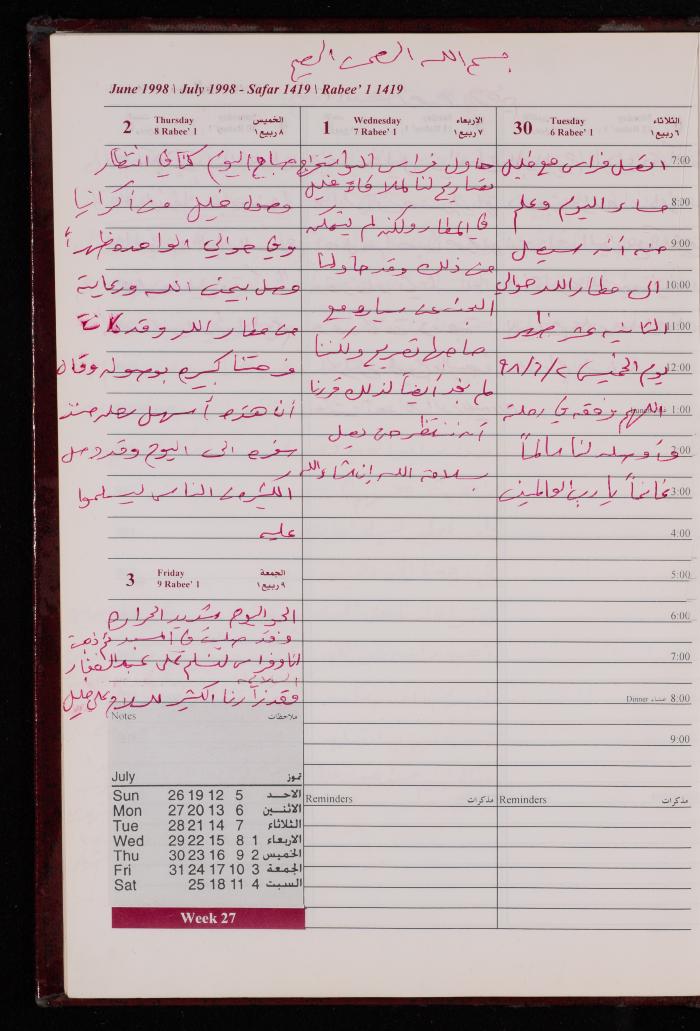 بسم الله الرحمن الرحيم
June 1998 \ July 1998 - Safar 1419 \ Rabee' 1 1419
30 Tuesday الثلاثاء
6 Rabee' 1 ٦ ربيع ١
اتصل فراس مع خليل
مساء اليوم وعلم
منه أنه سيصل
الى مطار اللد حوالي
الثانية عشر ظهر
يوم الخميس ٩٨/٧/٢
اللهم وفقه في رحلته
وأوصله لنا سالماً
غانماً يا رب العالمين
7:00
8:00
9:00
10:00
11:00
12:00
1:00
2:00
3:00
4:00
5:00
6:00
7:00
Dinner عشاء 8:00
9:00
Reminders مذكرات
1 Wednesday الاربعاء
7 Rabee' 1 ٧ ربيع ١
حاول فراس استخراج
تصاريح لنا لملاقاة خليل
في المطار ولكنه لم يتمكن
من ذلك وقد حاولنا
البحث عن سياره مع
صاحبها تصريح ولكننا
لم نجد أيضاً لذلك قررنا
أن ننتظر حتى يصل
بسلامة الله إن شاء الله
Reminders مذكرات
2 Thursday الخميس
8 Rabee' 1 ٨ ربيع ١
صباح اليوم كنا في انتظار
وصول خليل من أكرانيا
وفي حوالي الواحده ظهراً
وصل بحمد الله ورعايته
من مطار اللد وقد كانت
فرحتنا كبيره بوصوله وقال
أن هذه أسهل رحله منذ
سفره الى اليوم وقد وصل
الكثير من الناس ليسلموا
عليه
3 Friday الجمعة
9 Rabee' 1 ٩ ربيع ١
الجو اليوم شديد الحراره
وقد صليت في المسجد ثم ذهبت
انا وفراس لنسلم على عبد الغفار
فقد زارنا الكثير للسلام على خليل
Notes ملاحظات
July تموز
Sun 26 19 12 5 الاحد
Mon 27 20 13 6 الاثنين
Tue 28 21 14 7 الثلاثاء
Wed 29 22 15 8 1 الاربعاء
Thu 30 23 16 9 2 الخميس
Fri 31 24 17 10 3 الجمعة
Sat 25 18 11 4 السبت
Week 27